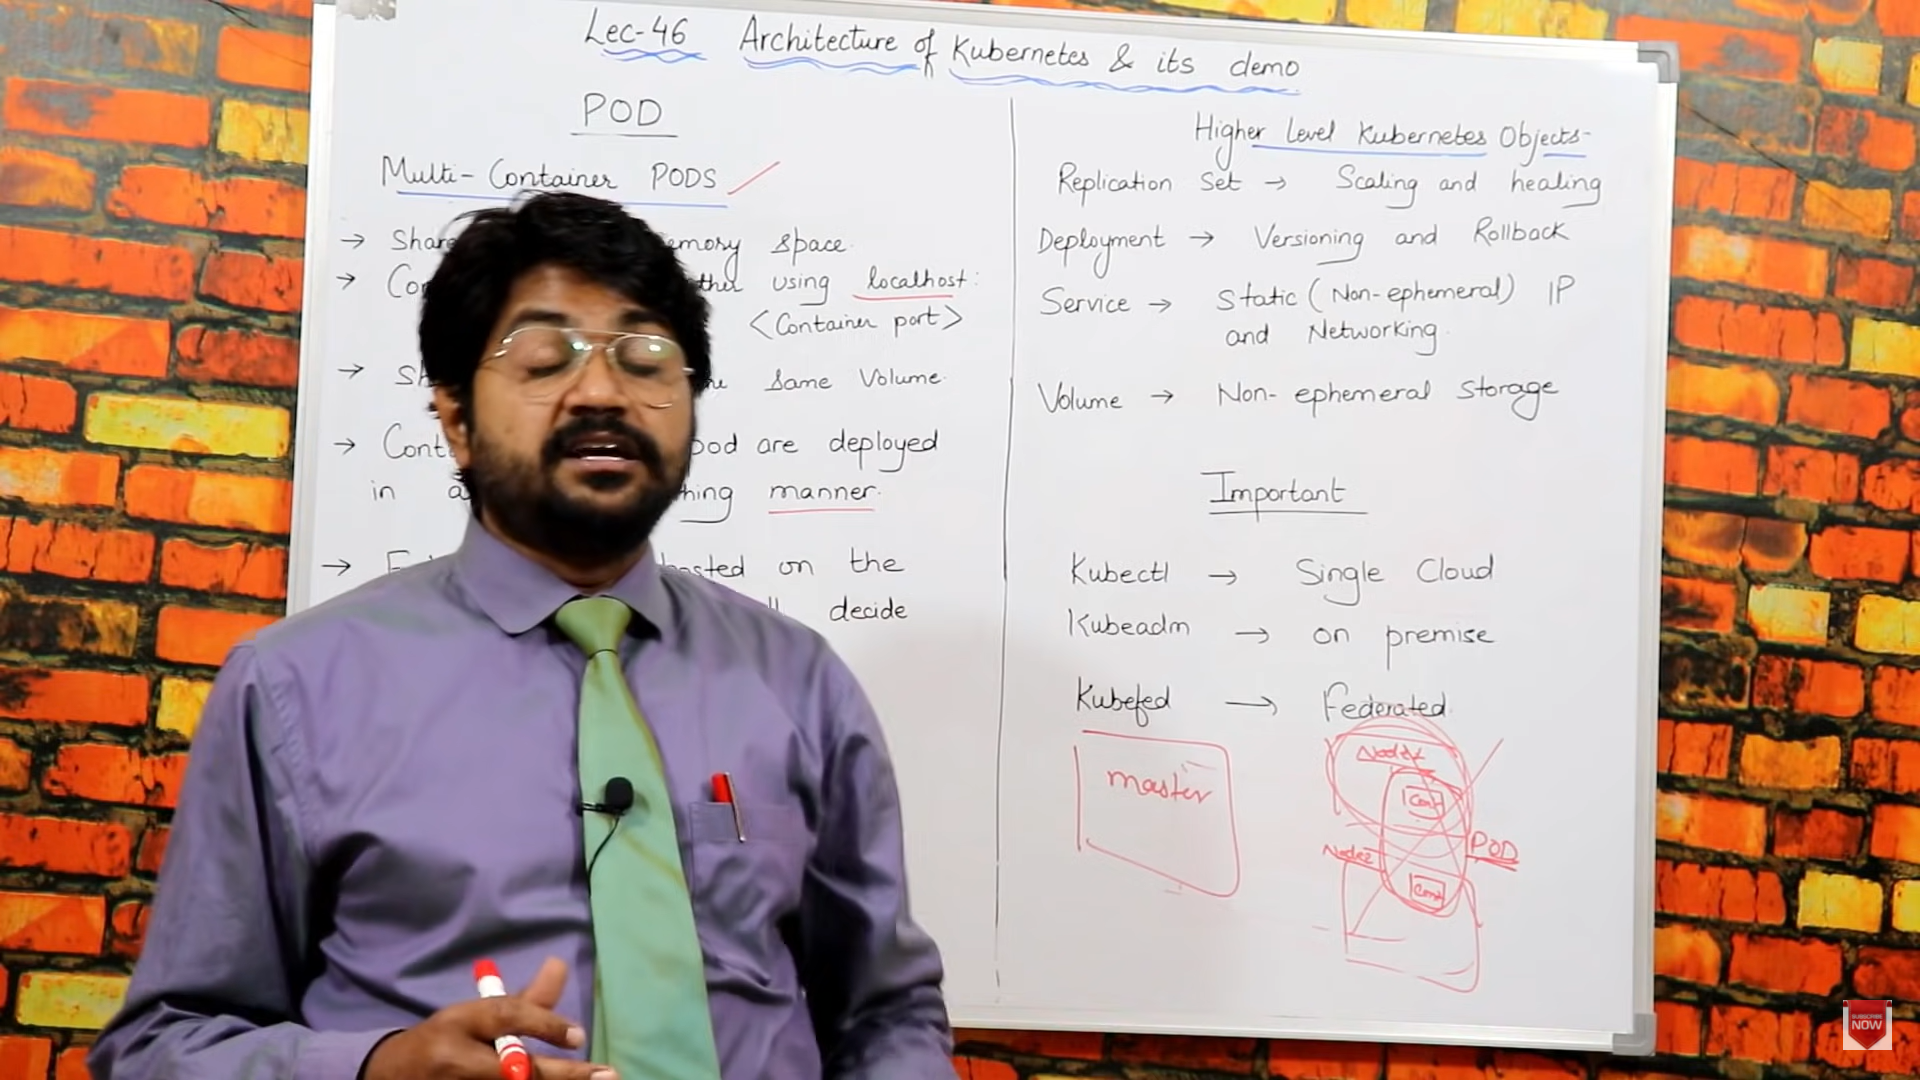 Lec-46 Architecture of Kubernetes & its demo
POD
Multi-Container PODS
→ Share emory space.
→ Co using localhost:
<Container port>
→ Sh same Volume.
→ Cont pod are deployed
in a hing manner.
→ on the
decide
Higher Level Kubernetes Objects-
Replication Set → Scaling and healing
Deployment → Versioning and Rollback
Service → Static (Non-ephemeral) IP
and Networking.
Volume → Non-ephemeral Storage
Important
Kubectl → Single Cloud
Kubeadm → on premise
Kubefed → Federated.
master
Node1
Cont
Node2
POD
Cont
SUBSCRIBE
NOW